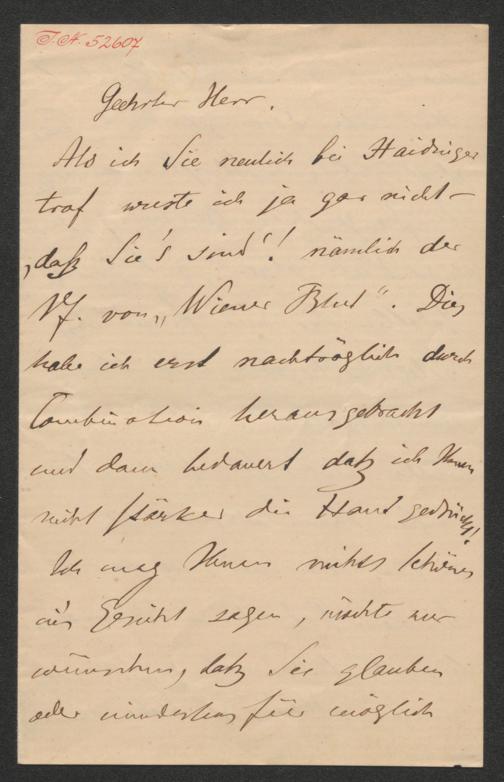 I.N. 52607
Geehrter Herr.
Als ich Sie neulich bei Haidinger
traf wuste ich ja gar nicht –
„daß Sie's sind"! nämlich der
Vf. von „Wiener Blut". Dies
habe ich erst nachträglich durch
Combination herausgebracht
und dann bedauert daß ich Ihnen
nicht stärker die Hand gedrückt!
Ich mag Ihnen nichts schönes
in's Gesicht sagen, möchte nur
wünschen, daß Sie glauben
oder mindestens für möglich